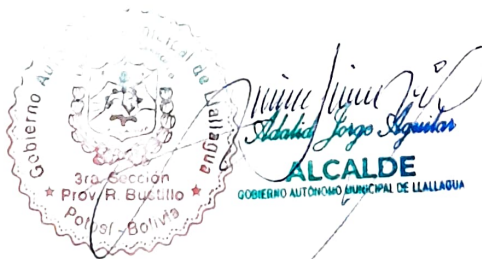 Gobierno Autónomo Municipal de Llallagua
3ra. Sección
Prov. R. Bustillo
Potosí - Bolivia
Adalid Jorge Aguilar
ALCALDE
GOBIERNO AUTÓNOMO MUNICIPAL DE LLALLAGUA